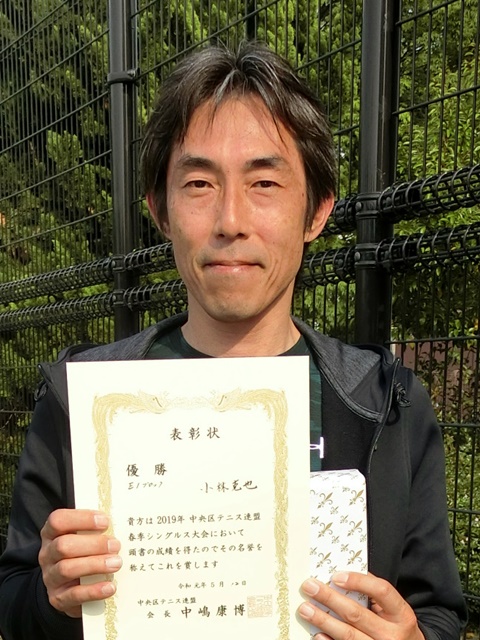 表彰状
優勝
E1ブロック 小林寛也
貴方は2019年 中央区テニス連盟
春季シングルス大会において
頭書の成績を得たのでその名誉を
称えてこれを賞します
令和元年5月12日
中央区テニス連盟
会長 中嶋康博